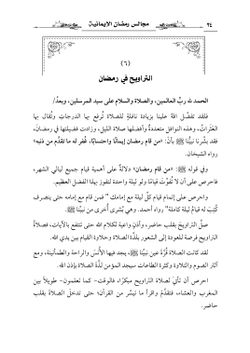 ٢٤
مجالس رمضان الإيمانية
(٦)
التراويح في رمضان
الحمد لله ربِّ العالمين، والصلاة والسلام على سيد المرسلين، وبعدُ/
فلقد تفضَّل الله علينا بزيادة نافلةٍ للصلاة تُرفع بها الدرجاتُ وتُقال بها
العَثَراتُ، وهذه النوافل متعددةٌ وأفضلها صلاة الليل، وزادت فضيلتها في رمضانَ،
فقد بشَّرنا نبيُّنا ﷺ بأنَّ: «من قام رمضان إيمانًا واحتسابًا، غُفر له ما تقدَّم من ذنبه»
رواه الشيخان.
وفي قوله ﷺ: «من قام رمضان» دلالةٌ على أهمية قيام جميع ليالي الشهر،
فاحرص على أن لا تُفوِّت قيامًا ولو ليلة واحدة لتفوز بهذا الفضل العظيم.
واحرص على إتمام قيام كلِّ ليلة مع إمامك "فمن قام مع إمامه حتى ينصرف
كُتِبَ له قيامُ ليلة كاملة" رواه أحمد. وهي بُشرى أُخرى من نبيِّنا ﷺ.
صلِّ التراويحَ بقلب حاضرٍ، وأذنٍ واعية لكلام الله حتى تنتفع بالآيات، فصلاةُ
التراويح فرصة لنعودَ إلى الشعور بلذَّة الصلاة وحلاوة القيام بين يدي الله.
لقد كانت الصلاة قُرَّة عين نبيِّنا ﷺ، يجد فيها الأُنسَ والراحةَ والطمأنينة، ومع
آثار الصوم والتلاوة وكثرة الطاعات سيجد المؤمن لذَّة الصلاة بإذن الله.
احرص أن تأتيَ لصلاة التراويح مبكرًا، فالوقت- كما تعلمون- طويلاً بين
المغرب والعشاء، فتقدَّم واقرأ ما تيسَّر من القرآن؛ حتى تدخلَ الصلاةَ بقلب
حاضر.